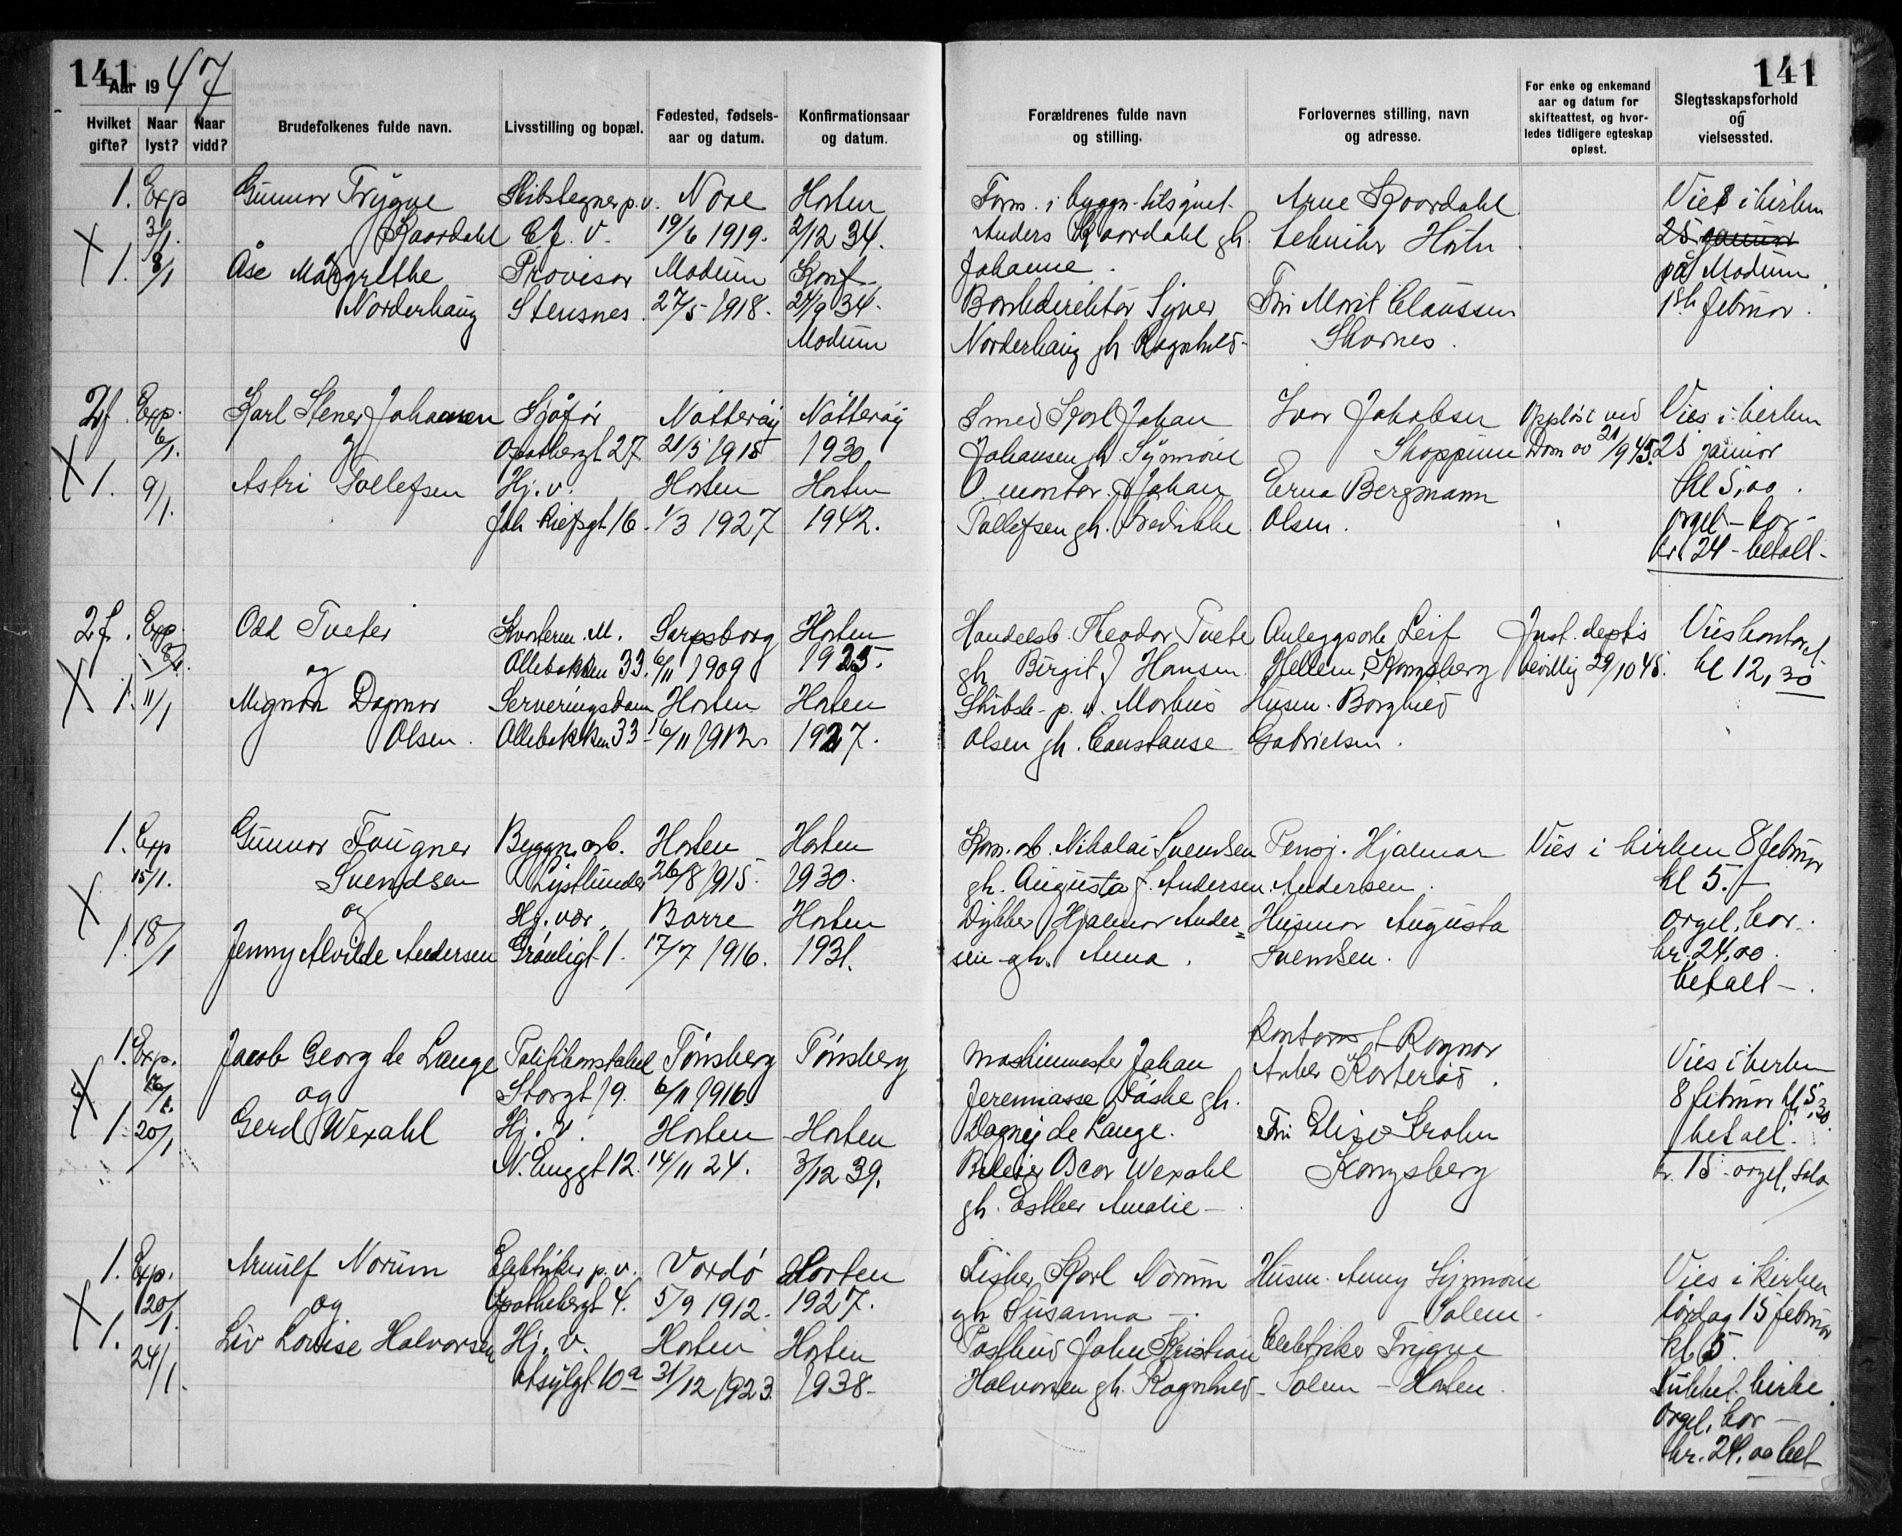 141
Aar 1947
Hvilket gifte?
Naar lyst?
Naar vidd?
Brudefolkenes fulde navn.
Livsstilling og bopæl.
Fødested, fødsels-
aar og datum.
Konfirmationsaar
og datum.
1. Exp Gunnar Trygve Skibstegner p.v. Nore Horten
3/1. Kaardahl C.J.V. 19/6 1919. 2/12 34.
1. 8/1 Åse Margrethe Provisor Modum Konf.
Norderhaug Stensnes 27/5 1918. 24/9 34.
Modum
2f. Exp. Karl Stener Johansen Sjåfør Nøtterøy Nøtterøy
6/1. og Apothekergt 27 21/5 1915 1930
1. 9/1. Astri Tollefsen Hj. v. Horten Horten
16 1/3 1927 1942.
2f. Exp. Odd Tveter Kvarterm. M. Sarpsborg Horten
og Ollebakken 33. 6/11 1909 1925.
1. 11/1 Mignon Dagmar Serveringsdam Horten Horten
Olsen. Ollebakken 33 16/11 1912. 1927.
1. Exp Gunnar Fougner Byggn. arb. Horten Horten
15/1. Svendsen Lystlunden 26/8 1915. 1930.
og Hj. vær. Borre Horten
1. 18/1 Jenny Alvilde Andersen Grønligt 1. 17/7 1916. 1931.
1. Exp. Jacob Georg de Lange Politikonstabel Tønsberg Tønsberg
og Storgt 19. 6/11 1916.
1. 20/1 Gerd Wexahl Hj. v. Horten Horten
N. Enggt 12. 14/11 24. 3/12 39.
1. Exp. Arnulf Norum Elektriker p.v. Vardø Horten
20/1. og Apothekergt 4. 5/9 1912. 1927.
1. 24/1. Liv Lovise Halvorsen Hj. v. Horten Horten
10a 31/12 1923 1938-
141
Forældrenes fulde navn
og stilling.
Forlovernes stilling, navn
og adresse.
For enke og enkemand
aar og datum for
skifteattest, og hvor-
ledes tidligere egteskap
opløst.
Slegtsskapsforhold
og
vielsessted.
Form. i byggn. Arne Kaardahl Vies i kirken
Anders Kaardahl gh. tekniker Horten 25 januar
Johanne. på Modum
Bankdirektør Syver Fru Marit Claussen 1st februar.
Norderhaug gh. Ragnhild- Skarnes.
Smed Karl Johan Ivar Jakobsen Oppløst ved Vies i kirken
Johansen gh. Skoppum Dom av 21/9 45. 25 januar
montør. Johan Erna Bergmann kl 5,00.
Tollefsen gh. Fredrikke Olsen. orgel - kor -
kr. 24 - betalt -
Handelsb. Theodor Tveter Anleggsarb Leif Just. dep.ts Vies kontoret
gh. Birgit f Hansen. Hellem, Kongsberg bevillig 29/10 45. kl 12,30
Skibsb. p.v. Markus Husm. Borghild
Olsen gh. Constanse Gabrielsen.
Kom. arb. Nikolai Svendsen Pensj. Hjalmar Vies i kirken 8 februar
gh. Augusta f. Andersen. Andersen. kl 5.-
Dykker Hjalmar Ander= Husmor Augusta orgel, kor.
sen gh. Anna. Svendsen. kr. 24,00
betalt -.
Maskinmester Johan Ragnar Vies i kirken
Jeremiasse Fåske gh. Anker Korterød. 8 februar kl 5,30.
Dagny de Lange. Fru Elise Krohn betalt.
Oscar Wexahl Kongsberg kr. 15 - orgel, solo
gh. Esther Amalie -
Fisker Karl Norum Husm. Anny Synnøve Vies i kirken
gh. Susanna -. Solem. lørdag 15 februar
Postbud John Kristian Elektriker Trygve kl 5.
Halvorsen gh. Ragnhild - Solem - Horten. kirke
Orgel, kor -
kr. 24,00 bet